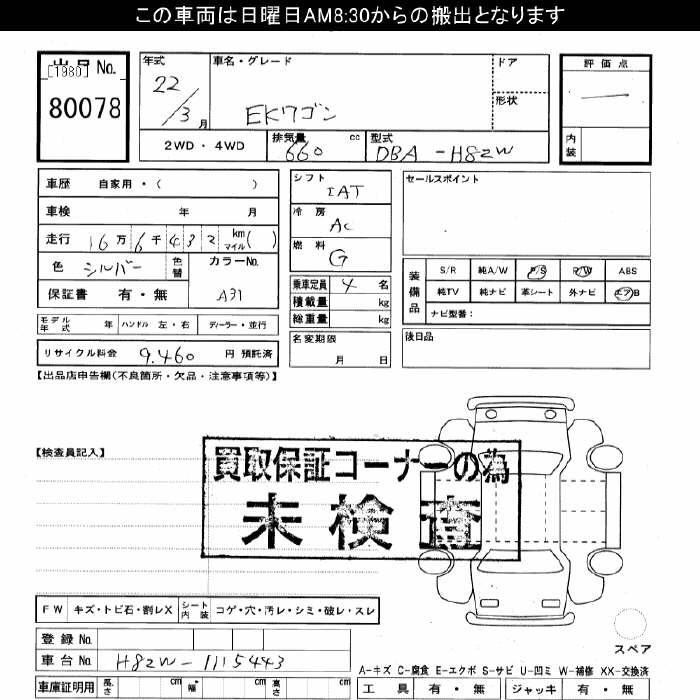 この車両は日曜日AM8:30からの搬出となります
出品 No.
[1980]
80078
年式
22/3月
車名・グレード
EKワゴン
ドア
形状
評価点
—
内装
2WD・4WD
排気量 660 cc
型式 DBA-H82W
車歴 自家用・( )
車検 年 月
走行 16万6千432 km マイル( )
色 シルバー 色替
カラーNo. A31
保証書 有・無
モデル年式 年 ハンドル 左・右 ディーラー・並行
リサイクル料金 9,460 円 預託済
シフト IAT
冷房 AC
燃料 G
乗車定員 4 名
積載量 kg
総重量 kg
名変期限 月 日
セールスポイント
装備品
S/R 純A/W P/S P/W ABS
純TV 純ナビ 革シート 外ナビ エアB
ナビ型番:
後日品
【出品店申告欄(不良箇所・欠品・注意事項等)】
【検査員記入】
買取保証コーナーの為
未検査
FW キズ・トビ石・割レX シート内装 コゲ・穴・汚レ・シミ・破レ・スレ
登録 No.
車台 No. H82W-1115443
車庫証明用 長さ cm 幅 cm 高さ cm
スペア
A-キズ C-腐食 E-エクボ S-サビ U-凹ミ W-補修 XX-交換済
工具 有・無 ジャッキ 有・無